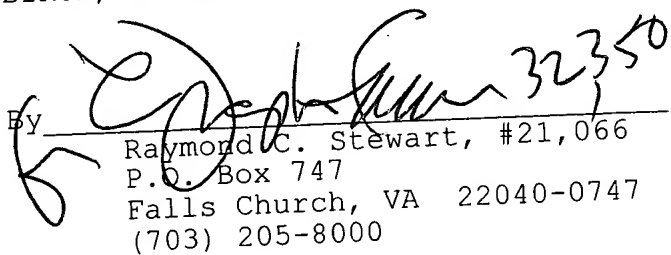 32,350
By
Raymond C. Stewart, #21,066
P.O. Box 747
Falls Church, VA 22040-0747
(703) 205-8000